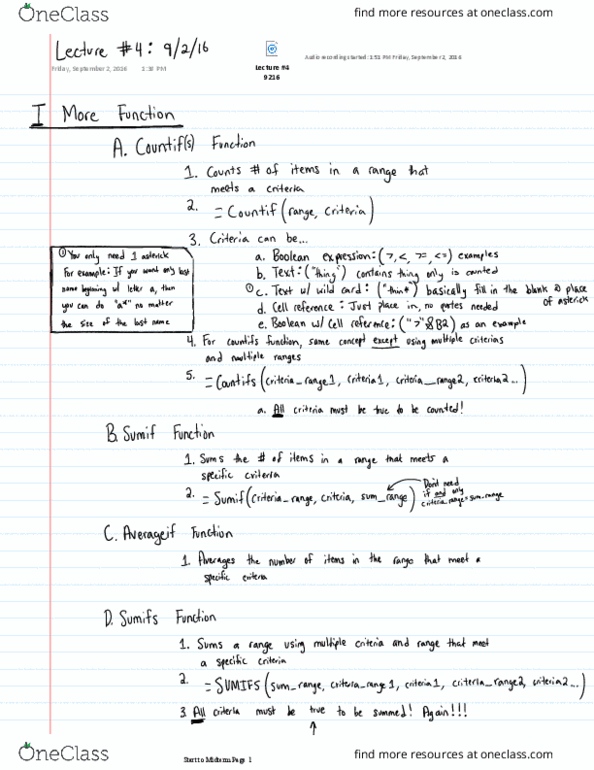 OneClass
find more resources at oneclass.com
Lecture #4: 9/2/16
Friday, September 2, 2016 3:38 PM
Lecture #4
9216
Audio recording started: 3:53 PM Friday, September 2, 2016
I More Function
A. Countif(s) Function
1. Counts # of items in a range that
meets a criteria
2. = Countif (range, criteria)
3. Criteria can be...
a. Boolean expression: (>, <, >=, <=) examples
b. Text: ("thing") contains thing only is counted
① c. Text w/ wild card: ("thin*") basically fill in the blank @ place
of asterick
d. Cell reference: Just place in, no quotes needed
e. Boolean w/ Cell reference: (">"&B2) as an example
① You only need 1 asterick
For example: If you want only last
name beginning w/ letter a, then
you can do "a*" no matter
the size of the last name
4. For countifs function, same concept except using multiple criterias
and multiple ranges
5. = Countifs (criteria_range1, criteria1, criteria_range2, criteria2...)
a. All criteria must be true to be counted!
B. Sumif Function
1. Sums the # of items in a range that meets a
specific criteria
2. = Sumif (criteria_range, criteria, sum_range)
Don't need
if and only
criteria_range=sum_range
C. Averageif Function
1. Averages the number of items in the range that meet a
specific criteria
D. Sumifs Function
1. Sums a range using multiple criteria and range that meet
a specific criteria
2. = SUMIFS (sum_range, criteria_range1, criteria1, criteria_range2, criteria2...)
3 All criteria must be true to be summed! Again!!!
OneClass
Start to Midterm Page 1
find more resources at oneclass.com